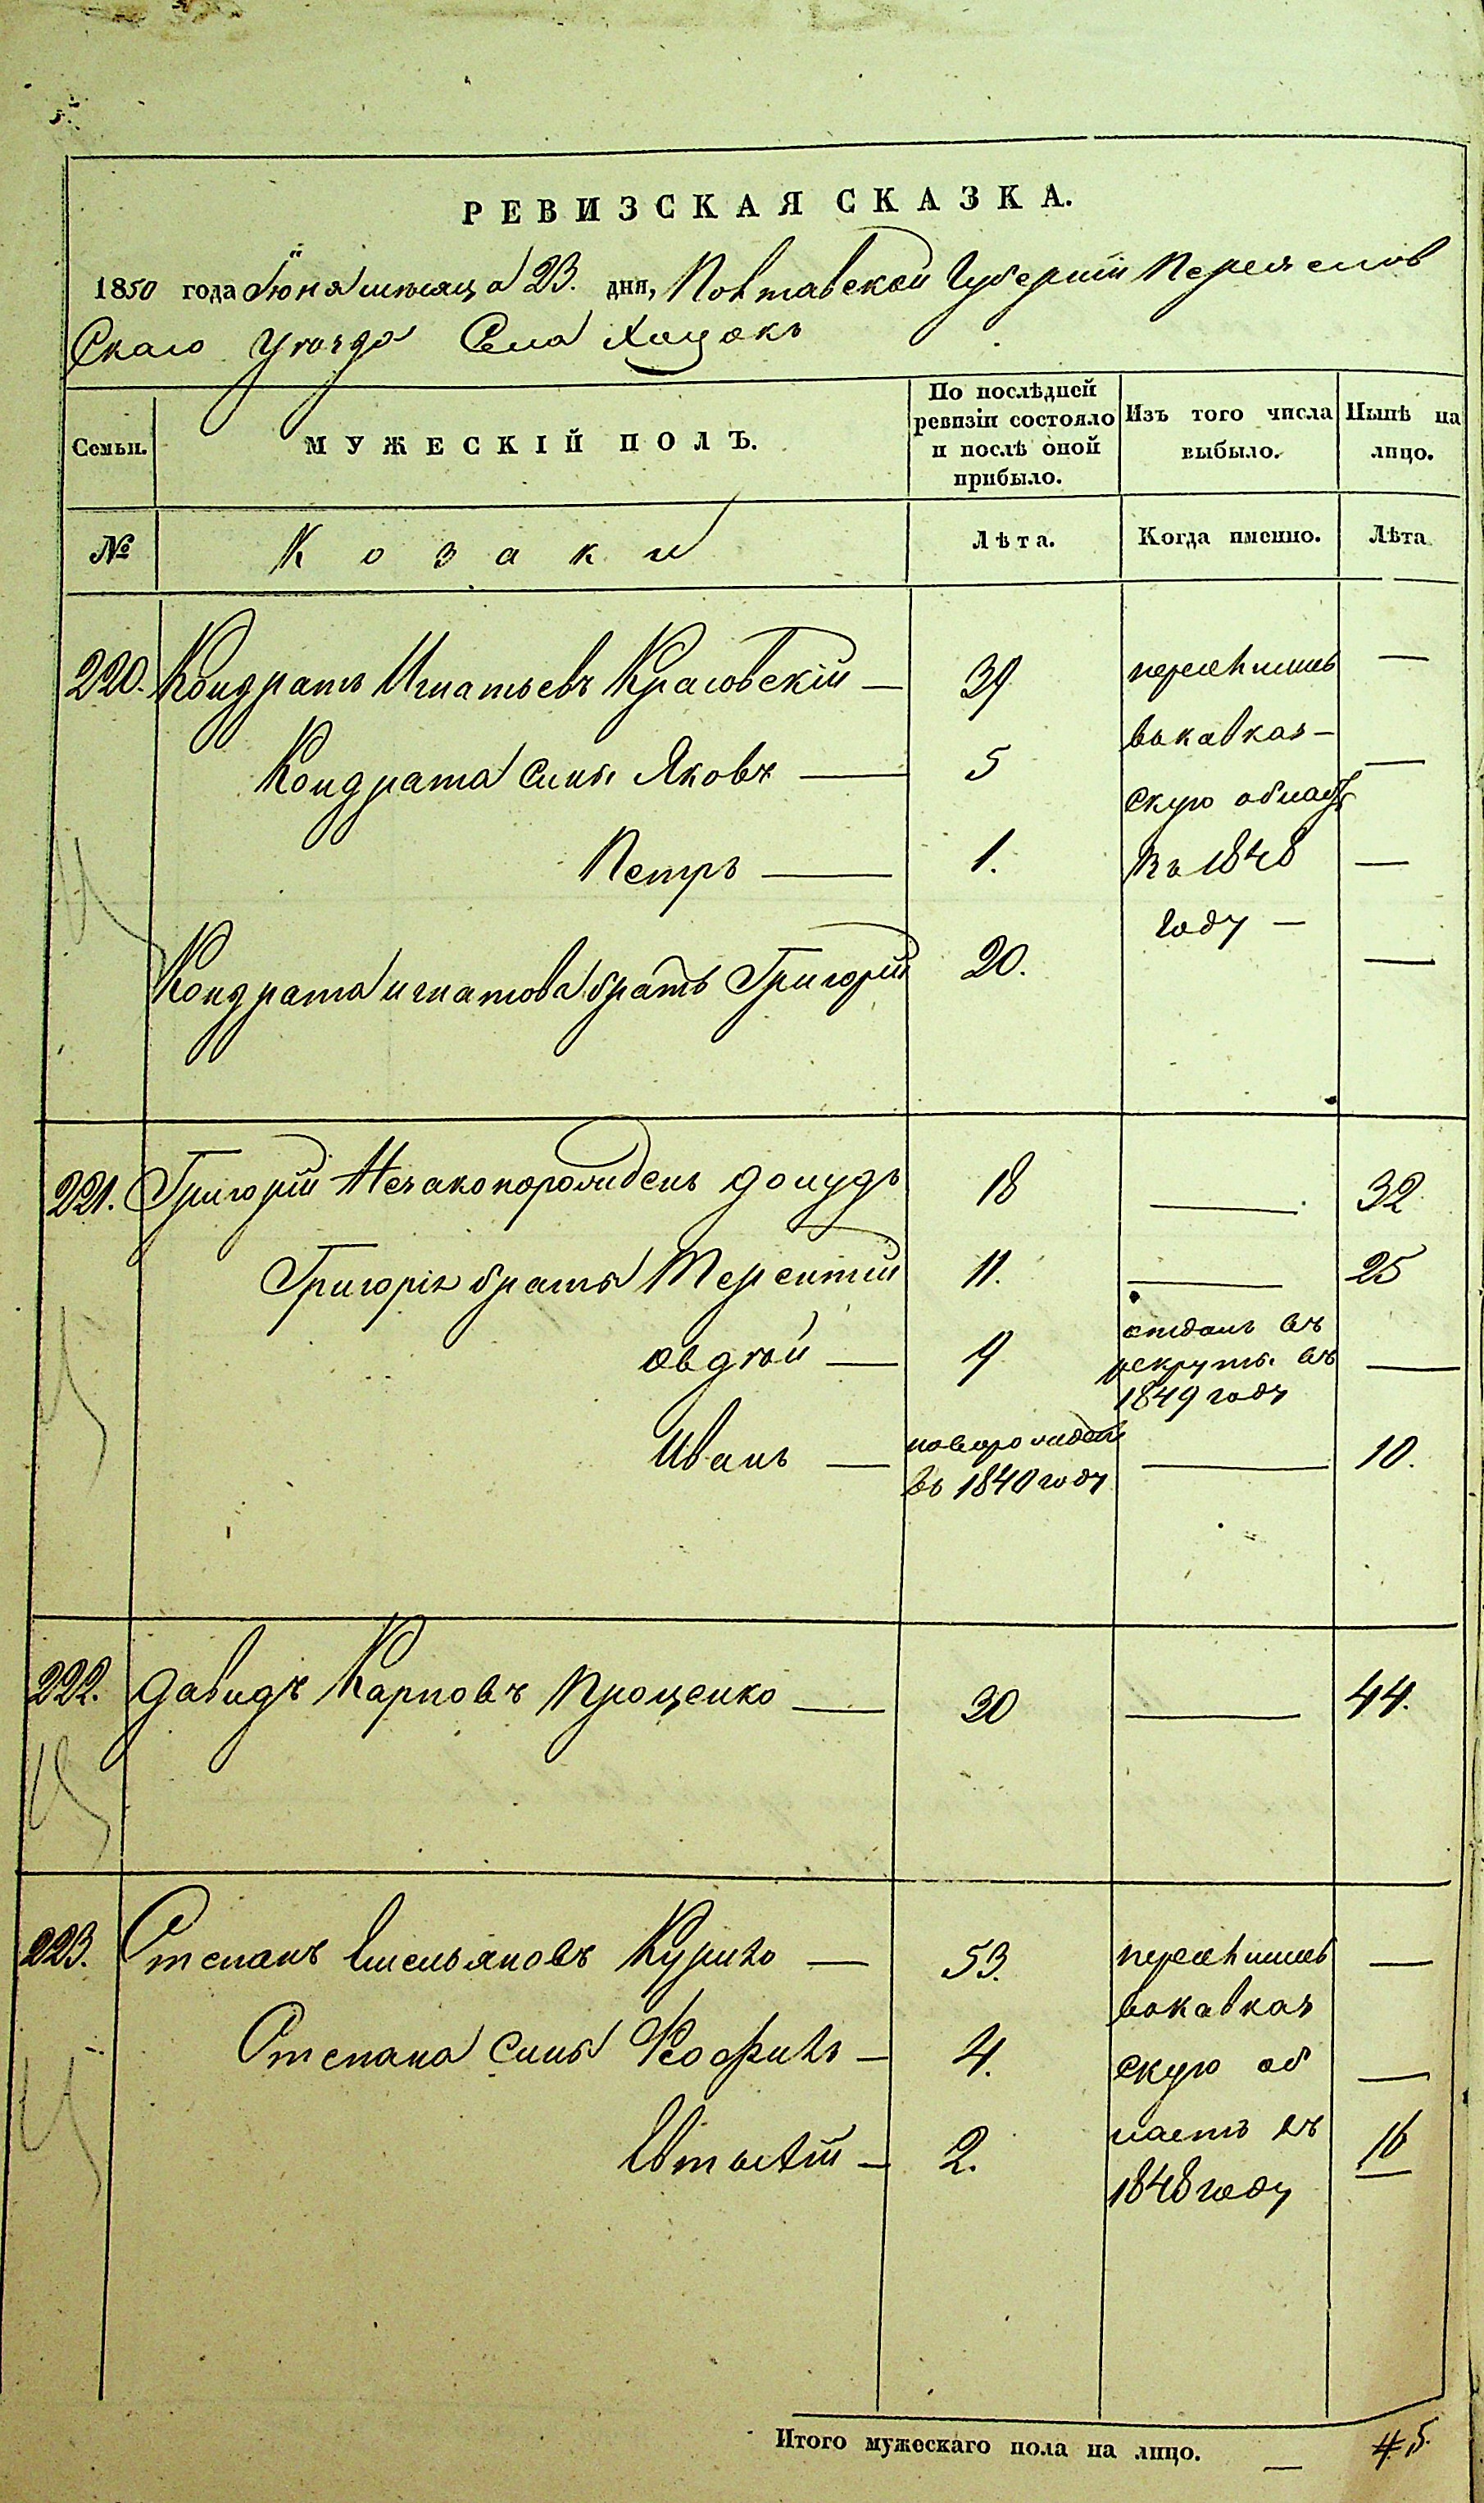 РЕВИЗСКАЯ СКАЗКА.
1850 года Іюня мѣсяца 23. дня, Полтавской Губерніи Переяслов
Скаго Уѣзда Села Хоцокъ
Семьи.
МУЖЕСКІЙ ПОЛЪ.
По послѣдней ревизіи состояло и послѣ оной прибыло.
Изъ того числа выбыло.
Нынѣ на лицо.
№ Козаки Лѣта. Когда именно. Лѣта
220. Кондратъ Игнатьевъ Красовскій — переселился —
Кондрата сынъ Яковъ — 5 вкавказ— —
скую область
Петръ — 1. въ 1848 —
году —
Кондрата игнатова братъ Григорій 20. —
221. Григорій 18 — 32
Григорія братья Терентій 11. — 25
авдѣй — 9 отданъ въ
рекруты въ —
1849 году
Иванъ — новорожден
въ 1840 году — 10.
222. Давидъ Карповъ Проценко — 30 — 44.
223. Степанъ Емельяновъ Курило — 53. переселился —
вокавказ
Степана сыны Феофилъ — 4. скую об —
ласть въ
Евтихій — 2. 16
1848 году
Итого мужескаго пола на лицо. — 5.